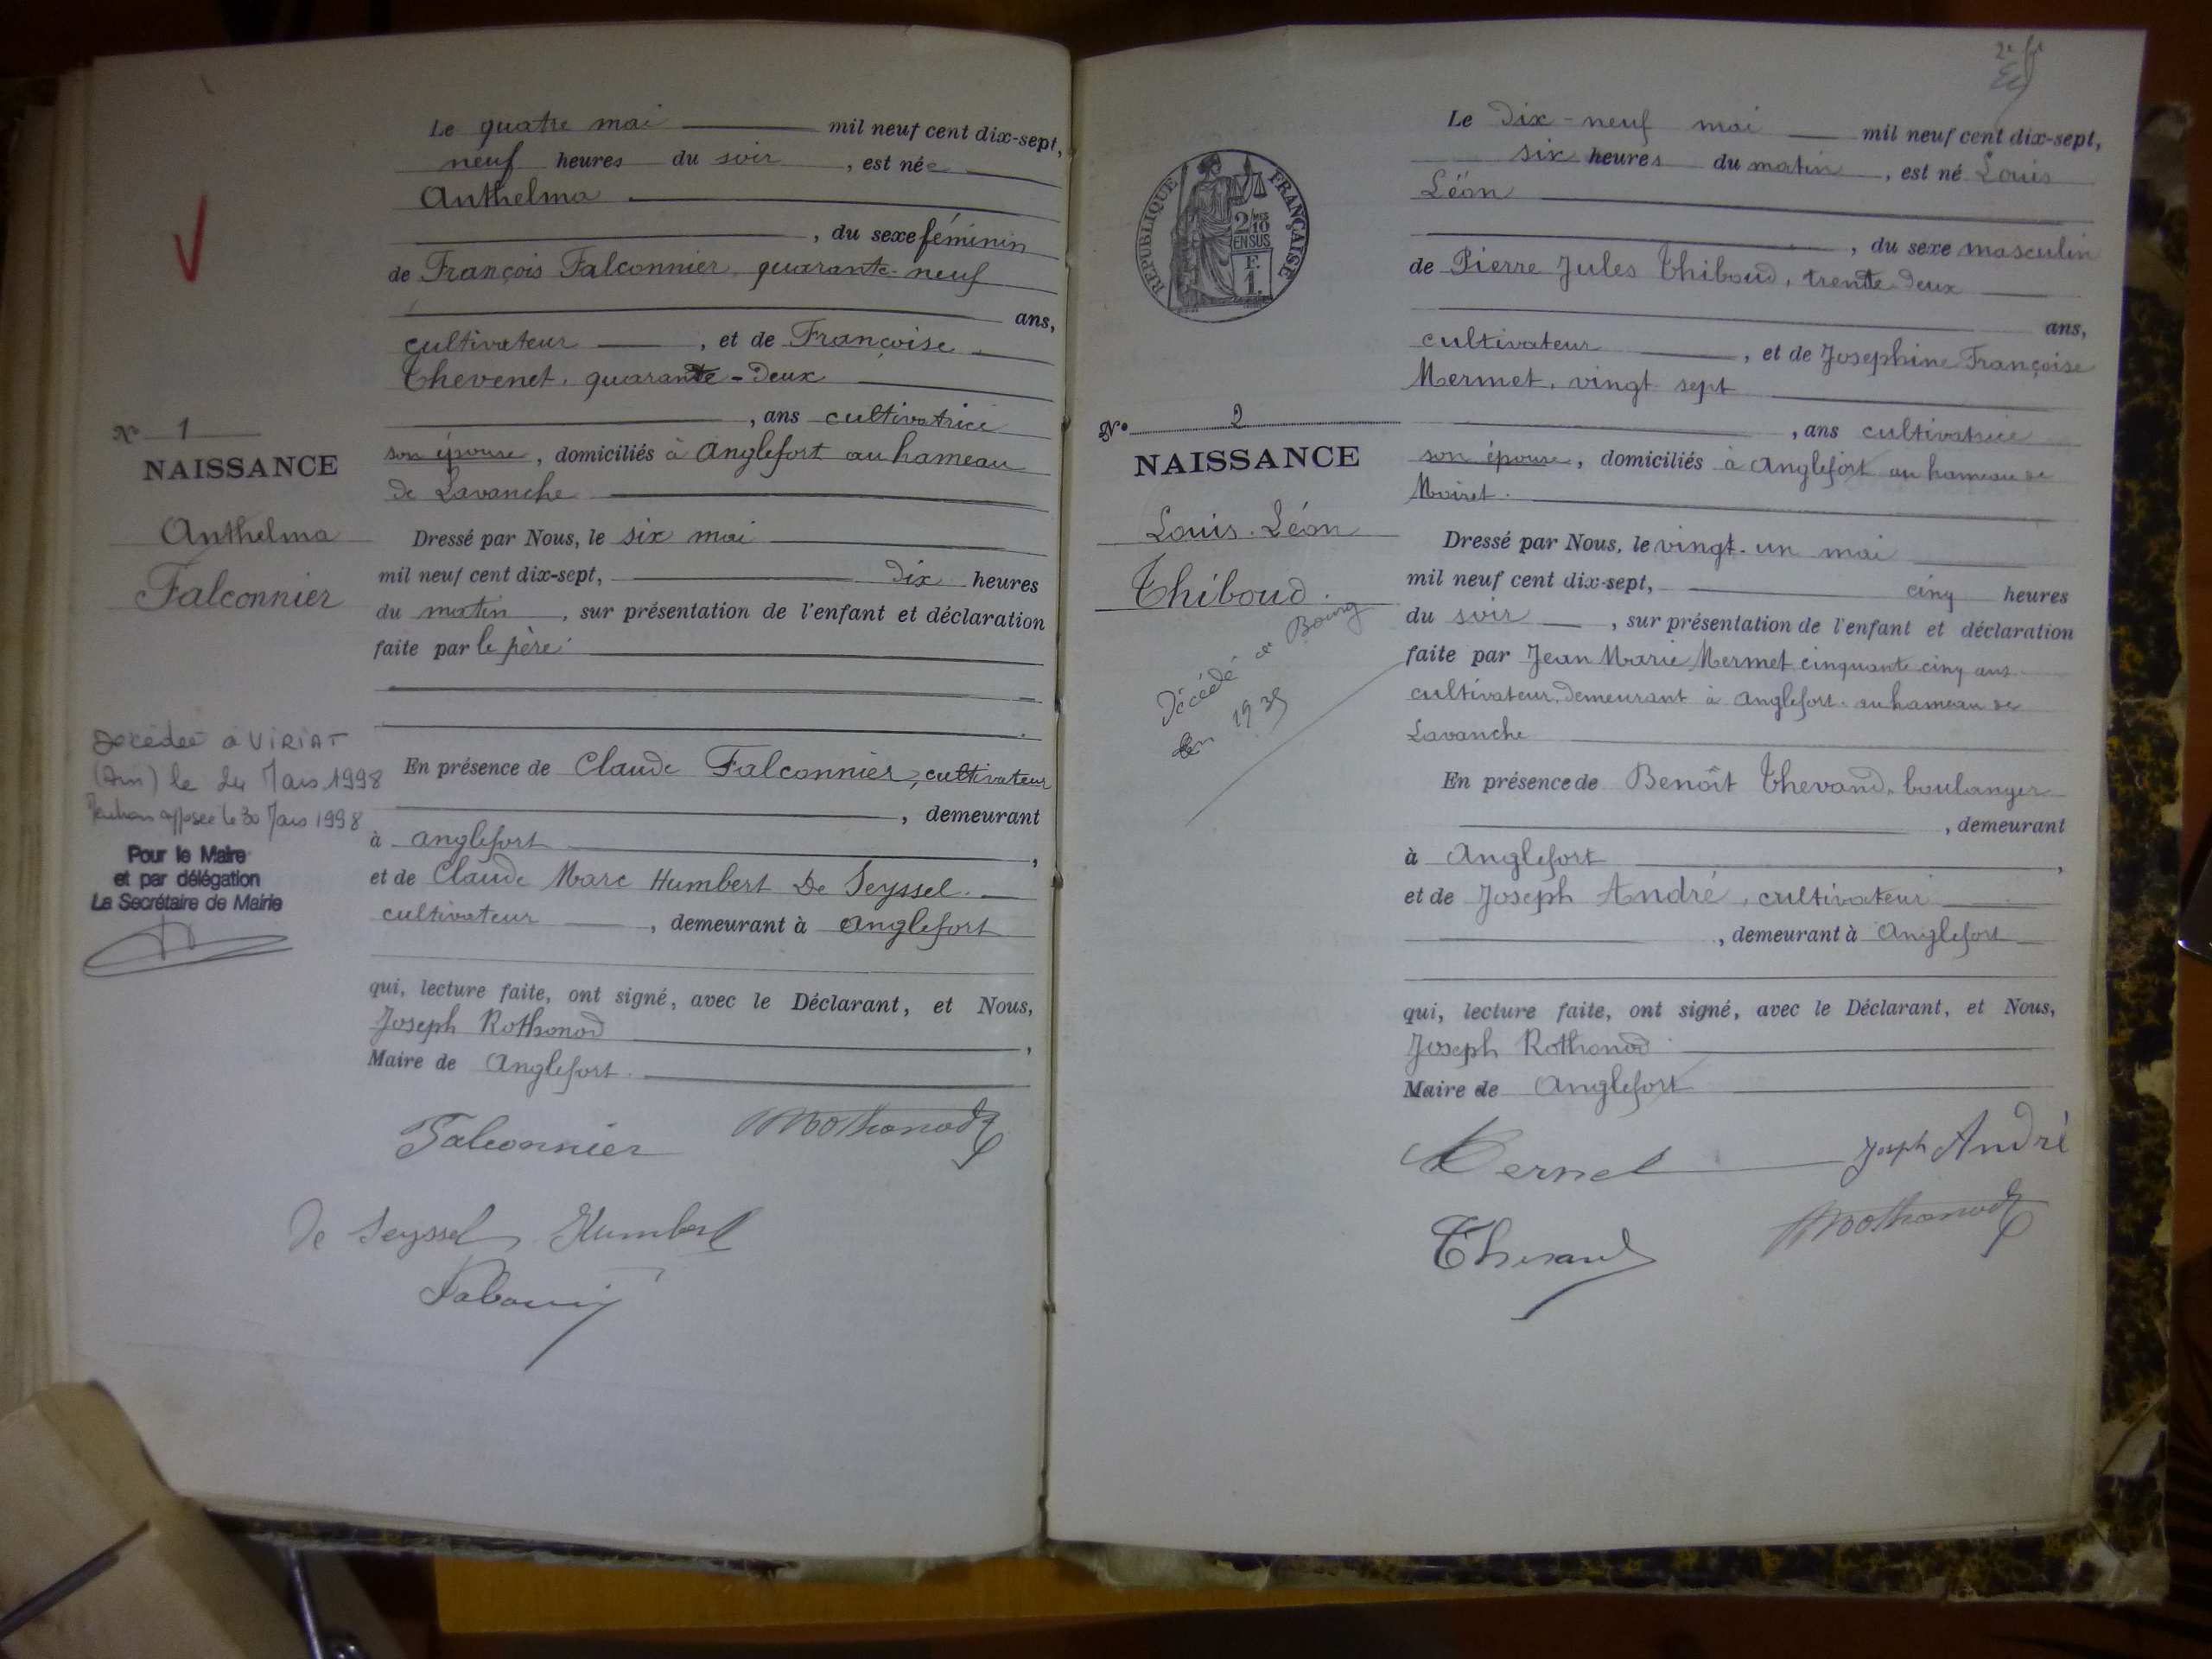 Le quatre mai mil neuf cent dix-sept,
neuf heures du soir, est née
Anthelma
, du sexe féminin
de François Falconnier, quarante-neuf
ans,
cultivateur, et de Françoise
Thevenet, quarante-deux
, ans cultivatrice
son épouse, domiciliés à Anglefort au hameau
de Lavanche
Dressé par Nous, le six mai
mil neuf cent dix-sept, dix heures
du matin, sur présentation de l'enfant et déclaration
faite par le père.
En présence de Claude Falconnier, cultivateur
, demeurant
à Anglefort,
et de Claude Marc Humbert De Seyssel.
cultivateur, demeurant à Anglefort
qui, lecture faite, ont signé, avec le Déclarant, et Nous,
Joseph Rothonod,
Maire de Anglefort.
Falconnier Rothonod
De Seyssel Humbert
N° 1
NAISSANCE
Anthelma
Falconnier
Décédée à VIRIAT
(Ain) le 24 Mars 1998
Mention apposée le 30 Mars 1998
Pour le Maire
et par délégation
La Secrétaire de Mairie
RÉPUBLIQUE FRANÇAISE
2/10
EN SUS
F.
1.
N° 2
NAISSANCE
Louis Léon
Thiboud.
Décédé à Bourg
en 1935
Le Dix-neuf mai mil neuf cent dix-sept,
six heures du matin, est né Louis
Léon
, du sexe masculin
de Pierre Jules Thiboud, trente-deux
ans,
cultivateur, et de Josephine Françoise
Mermet, vingt-sept
, ans cultivatrice
son épouse, domiciliés à Anglefort au hameau de
Moiret.
Dressé par Nous, le vingt-un mai
mil neuf cent dix-sept, cinq heures
du soir, sur présentation de l'enfant et déclaration
faite par Jean Marie Mermet, cinquante cinq ans
cultivateur, demeurant à Anglefort au hameau de
Lavanche
En présence de Benoît Thevand, boulanger
, demeurant
à Anglefort,
et de Joseph André, cultivateur
, demeurant à Anglefort
qui, lecture faite, ont signé, avec le Déclarant, et Nous,
Joseph Rothonod
Maire de Anglefort
Mermet Joseph André
Thevand Rothonod